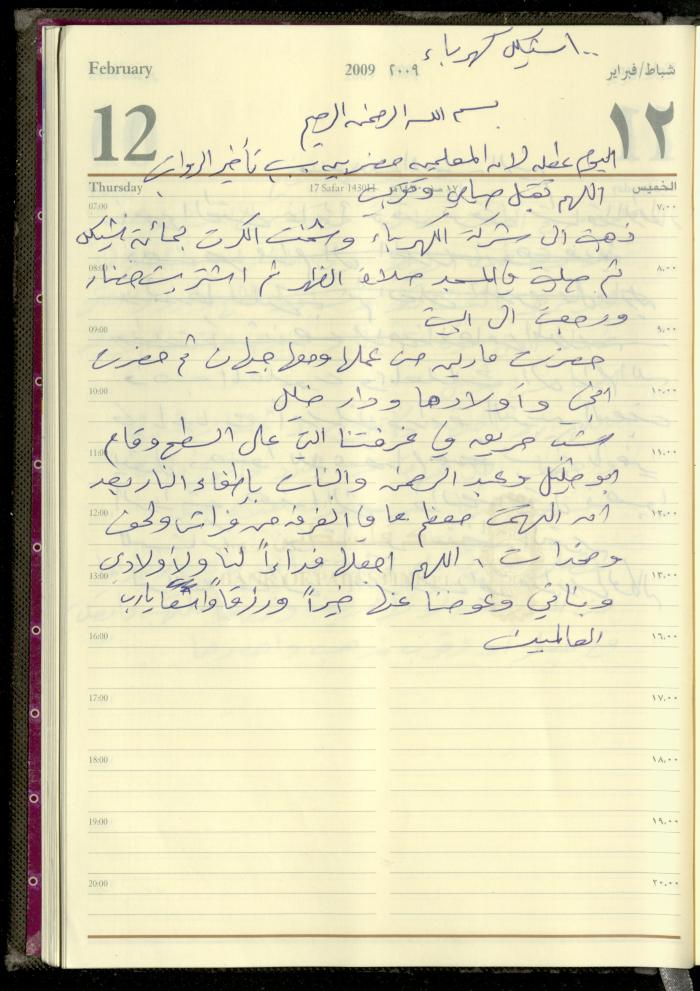 ١٠٠ شيكل كهرباء
February 2009 ٢٠٠٩ شباط/فبراير
12 ١٢
بسم الله الرحمن الرحيم
اليوم عطله لان المعلمين مضربين بسبب تأخير الرواتب
Thursday 17 Safar 1430H ١٧ صفر الخميس
اللهم تقبل صيامي وقربت
07:00 ٧,٠٠
ذهبت الى شركة الكهرباء وشحنت الكرت بمائة شيكل
08:00 ٨,٠٠
ثم صليت في المسجد صلاة الظهر ثم اشتريت خضار
ورجعت الى البيت
09:00 ٩,٠٠
حضرت مارلين من عملها ومعها جيهان ثم حضرت
10:00 ١٠,٠٠
اختي وأولادها ودار خليل
شب حريق في غرفتنا التي على السطح وقام
11:00 ١١,٠٠
ابو خليل وعبد الرحمن والبنات بإطفاء النار بعد
12:00 ١٢,٠٠
ان التهمت معظم ما في الغرفه من فراش ولحف
13:00 ١٣,٠٠
ومخدات ، اللهم اجعلها فداءاً لنا ولأولادي
وبناتي وعوضنا عنها خيراً ورزقاً واسعاً يا رب
16:00 ١٦,٠٠
العالمين
17:00 ١٧,٠٠
18:00 ١٨,٠٠
19:00 ١٩,٠٠
20:00 ٢٠,٠٠